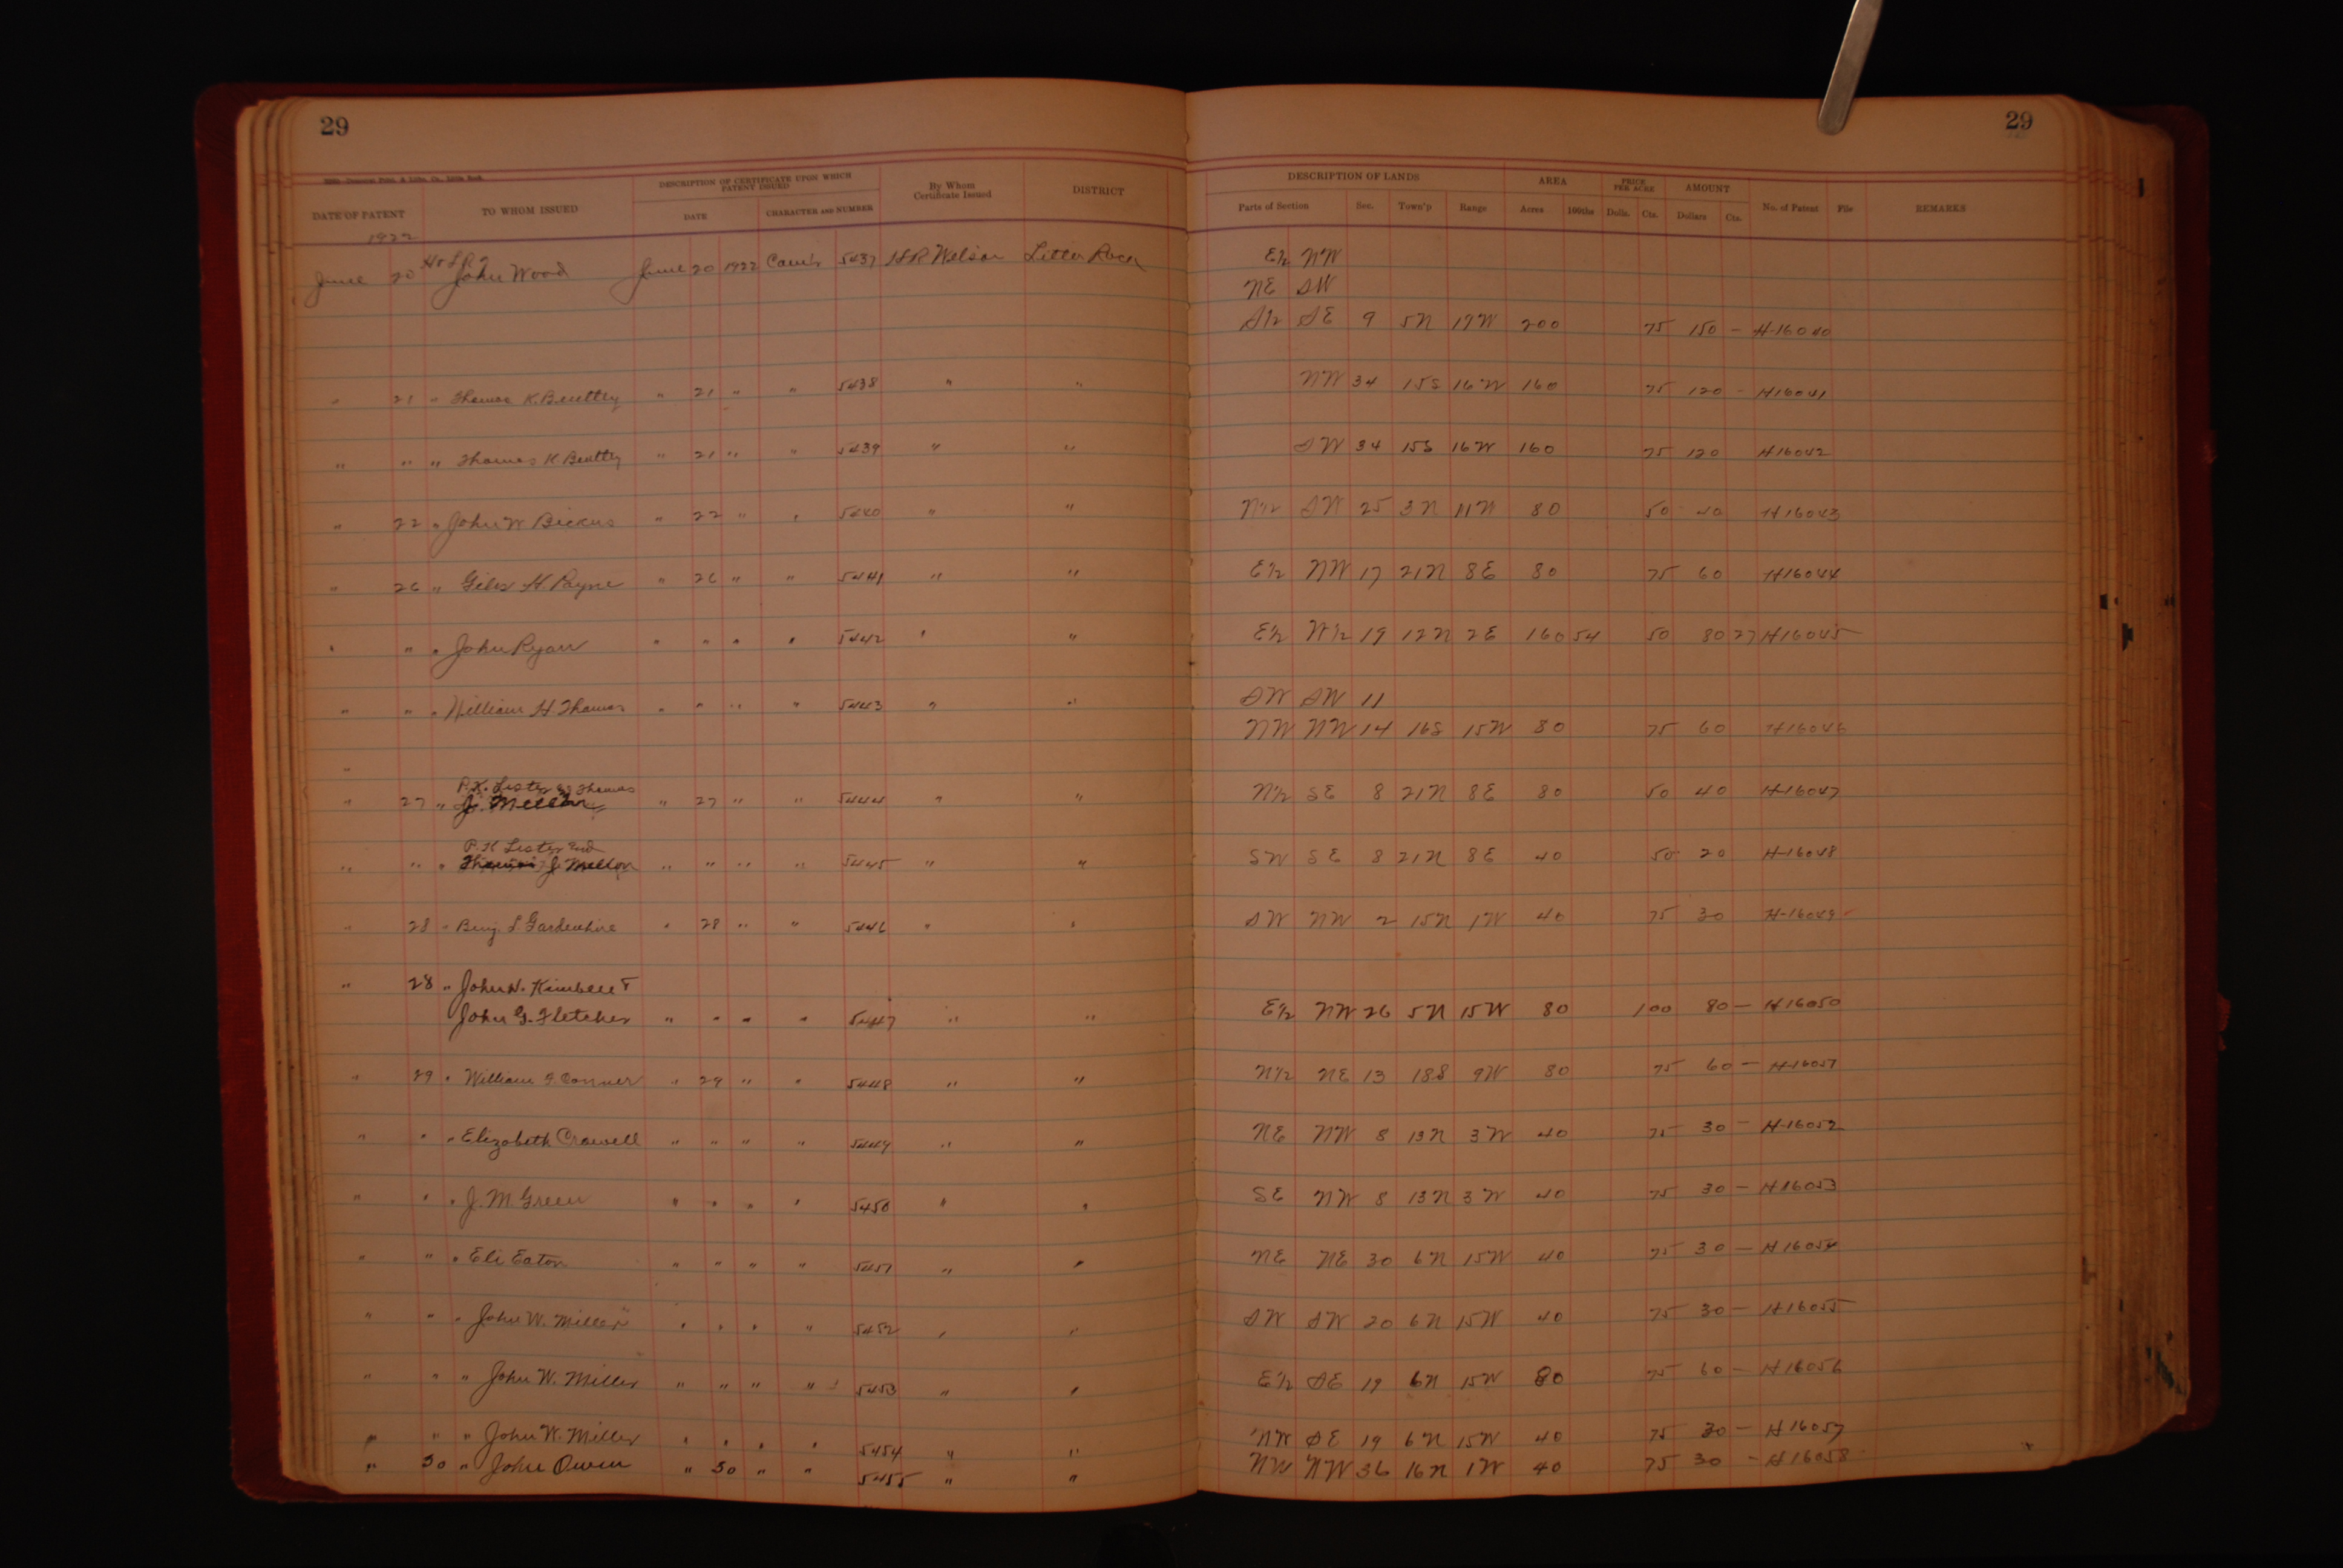 29 29
DESCRIPTION OF CERTIFICATE UPON WHICH PATENT ISSUED By Whom Certificate Issued DISTRICT DESCRIPTION OF LANDS AREA PRICE PER ACRE AMOUNT
DATE OF PATENT TO WHOM ISSUED DATE CHARACTER AND NUMBER Parts of Section Sec. Town'p Range Acres 100ths Dolls. Cts. Dollars Cts. No. of Patent File REMARKS
1922
June 20 John Wood June 20 1922 5437 H R Wilson Little Rock E½ NW
NE SW
S½ SE 9 5N 19W 200 75 150 — H-16040
" 21 " Thomas K. " 21 " " 5438 " " NW 34 15S 16W 160 75 120 - H16041
" " " Thomas K " 21 " " 5439 " " SW 34 15S 16W 160 75 120 H16042
" 22 " John W " 22 " " 5440 " " N½ SW 25 3N 11W 80 50 40 H16043
" 26 " Giles H Payne " 26 " " 5441 " " E½ NW 17 21N 8E 80 75 60 H16044
" " " John Ryan " " " " 5442 " " E½ W½ 19 12N 2E 160 54 50 80 27 H16045
" " " William H Thomas " " " " 5443 " " SW SW 11
NW NW 14 16S 15W 80 75 60 H16046
"
P.K. Lester & Thomas
" 27 " J. Mellon " 27 " " 5444 " " N½ SE 8 21N 8E 80 50 40 H-16047
P.K Lester and
" " " Thomas J Mellon " " " " 5445 " " SW SE 8 21N 8E 40 50 20 H-16048
" 28 " Benj. L Gardenhire " 28 " " 5446 " " SW NW 2 15N 1W 40 75 30 H-16049
" 28 " John W. Kimbell &
John G. Fletcher " " " " 5447 " " E½ NW 26 5N 15W 80 100 80 — H16050
" 29 " William G. Conner " 29 " " 5448 " " N½ NE 13 18S 9W 80 75 60 — H-16051
" " " Elizabeth Crowell " " " " 5449 " " NE NW 8 13N 3W 40 75 30 — H-16052
" " " J. M. Green " " " " 5450 " " SE NW 8 13N 3W 40 75 30 — H16053
" " " Eli Eaton " " " " 5451 " " NE NE 30 6N 15W 40 75 30 — H16054
" " " John W. Miller " " " " 5452 " " SW SW 20 6N 15W 40 75 30 — H16055
" " " John W. Miller " " " " 5453 " " E½ SE 19 6N 15W 80 75 60 — H16056
" " " John W. Miller " " " " 5454 " " NW SE 19 6N 15W 40 75 30 — H16057
" 30 " John Owen " 30 " " 5455 " " NW NW 36 16N 1W 40 75 30 - H16058